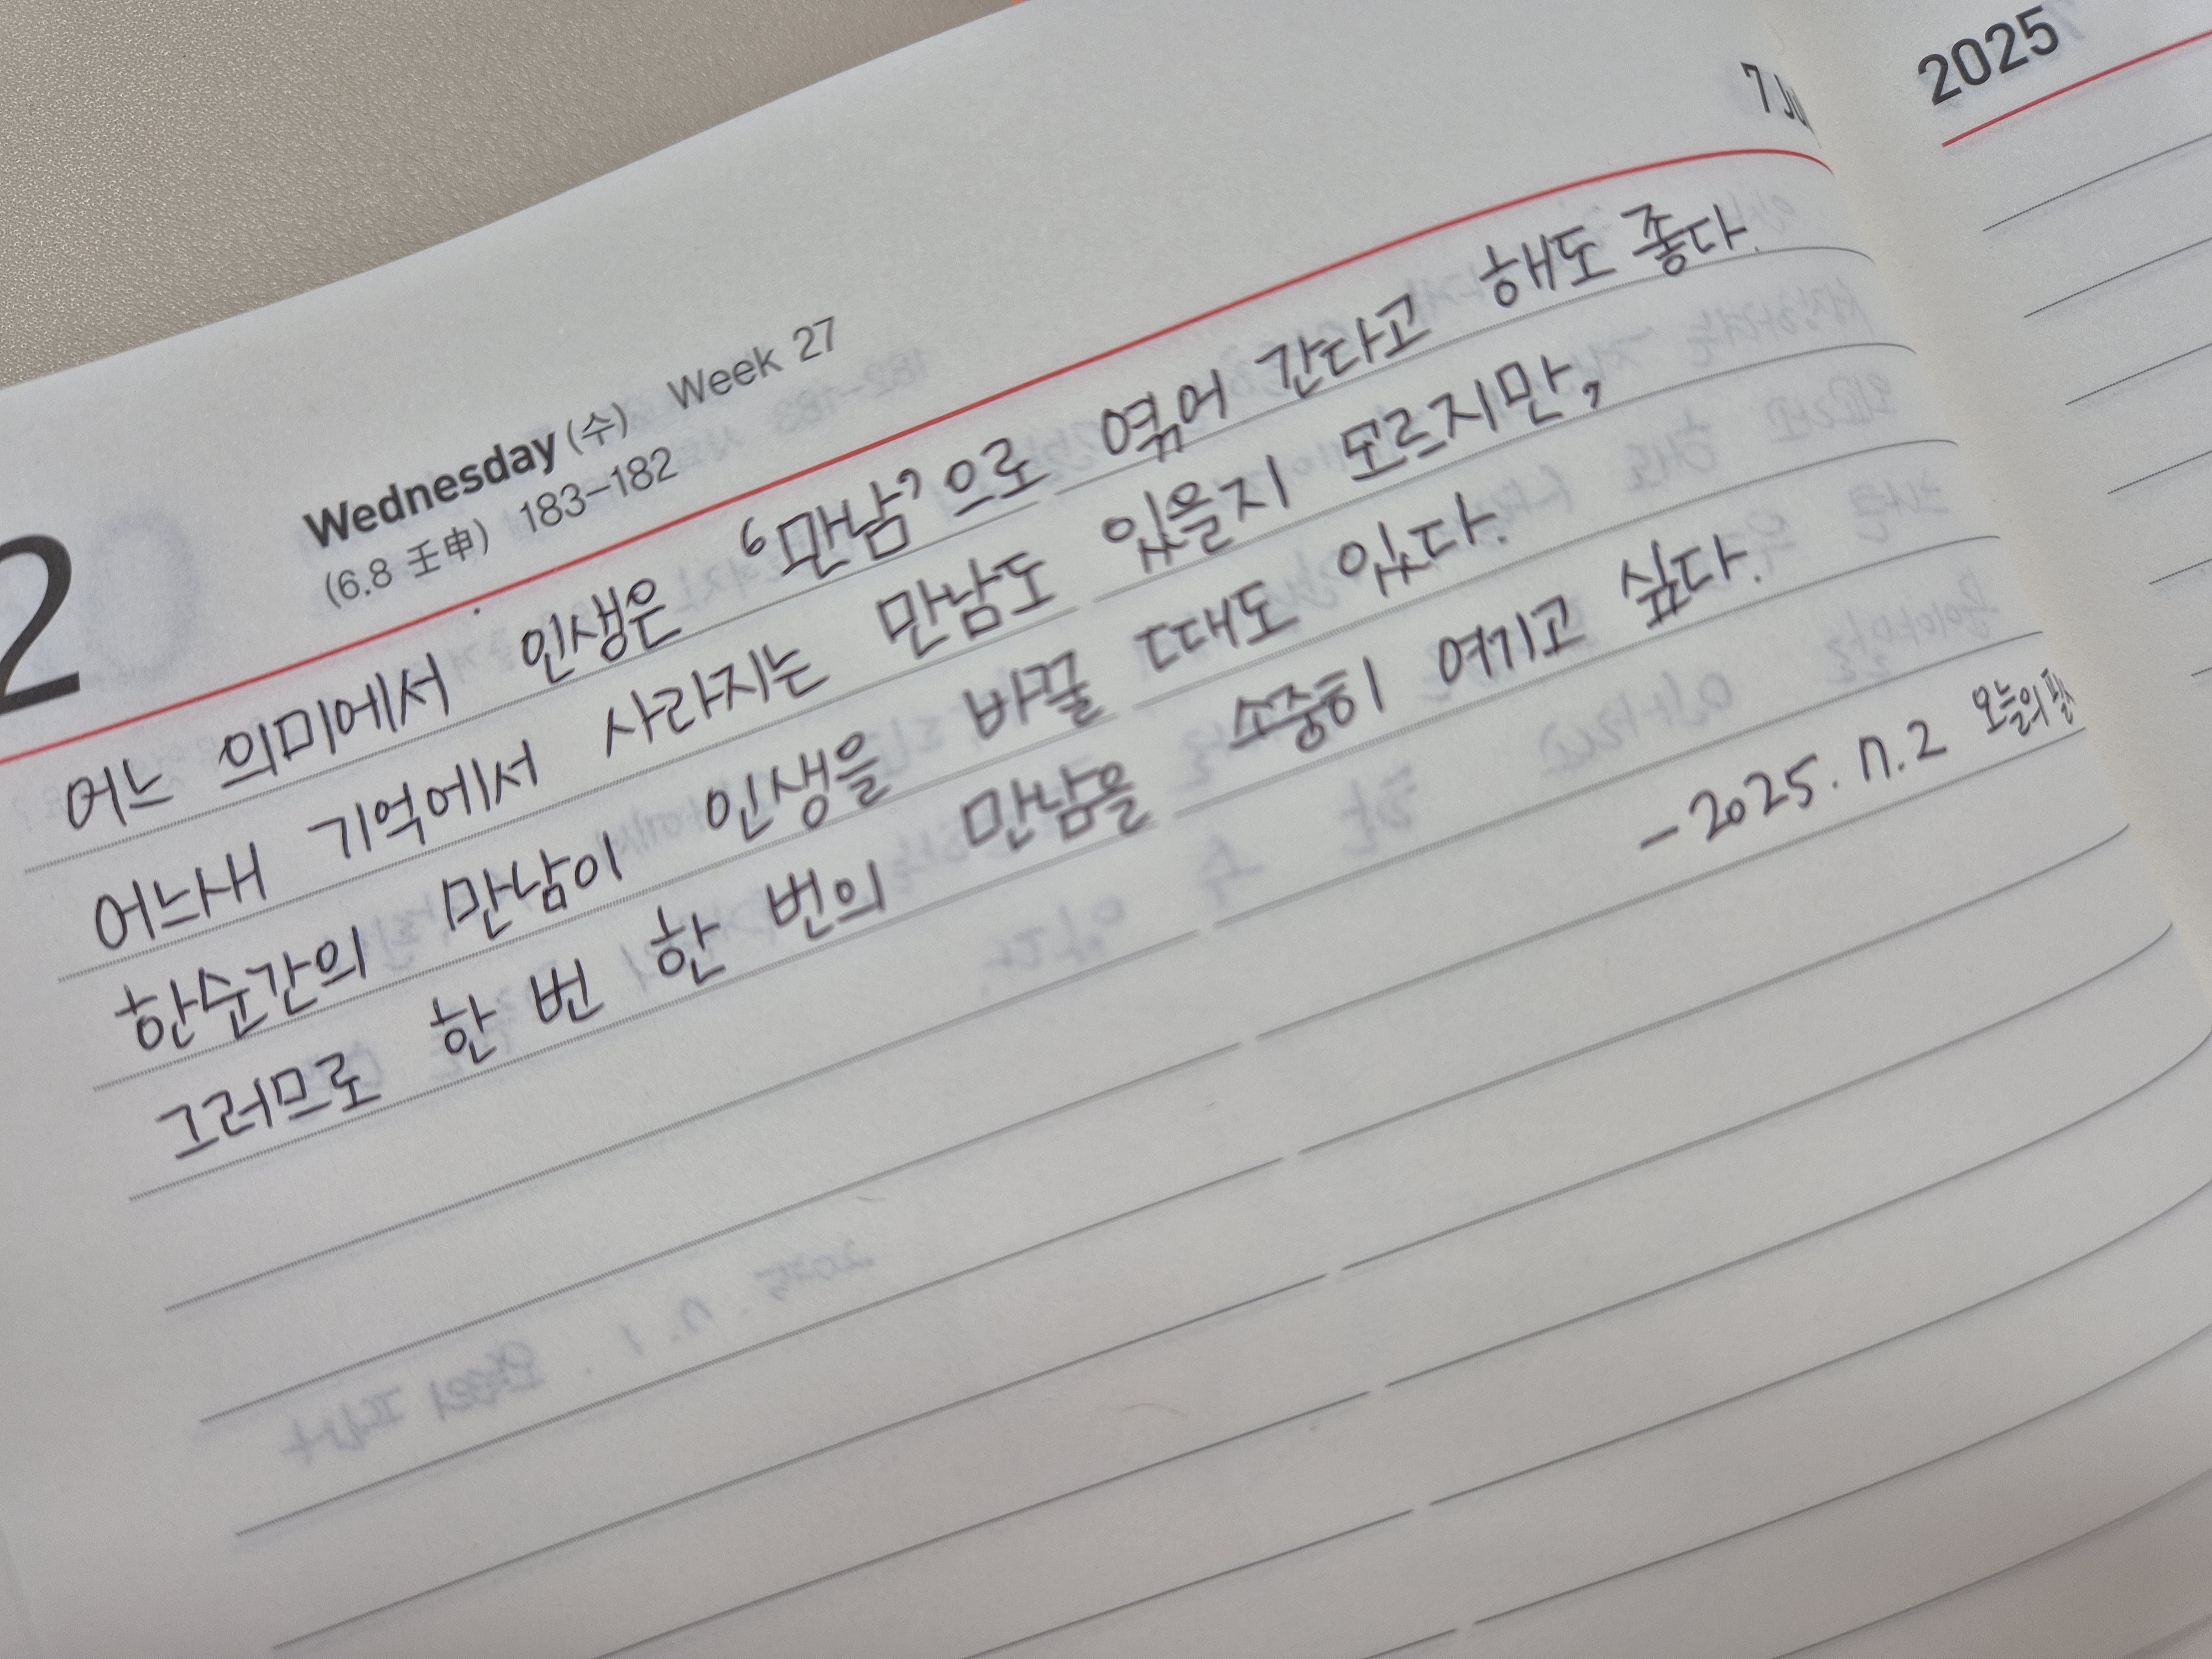 2025
2
Wednesday (수) Week 27
(6.8 壬申) 183-182
어느 의미에서 인생은 '만남'으로 엮어 간다고 해도 좋다.
어느새 기억에서 사라지는 만남도 있을지 모르지만,
한순간의 만남이 인생을 바꿀 때도 있다.
그러므로 한 번 한 번의 만남을 소중히 여기고 싶다.
- 2025. 7. 2 오늘의